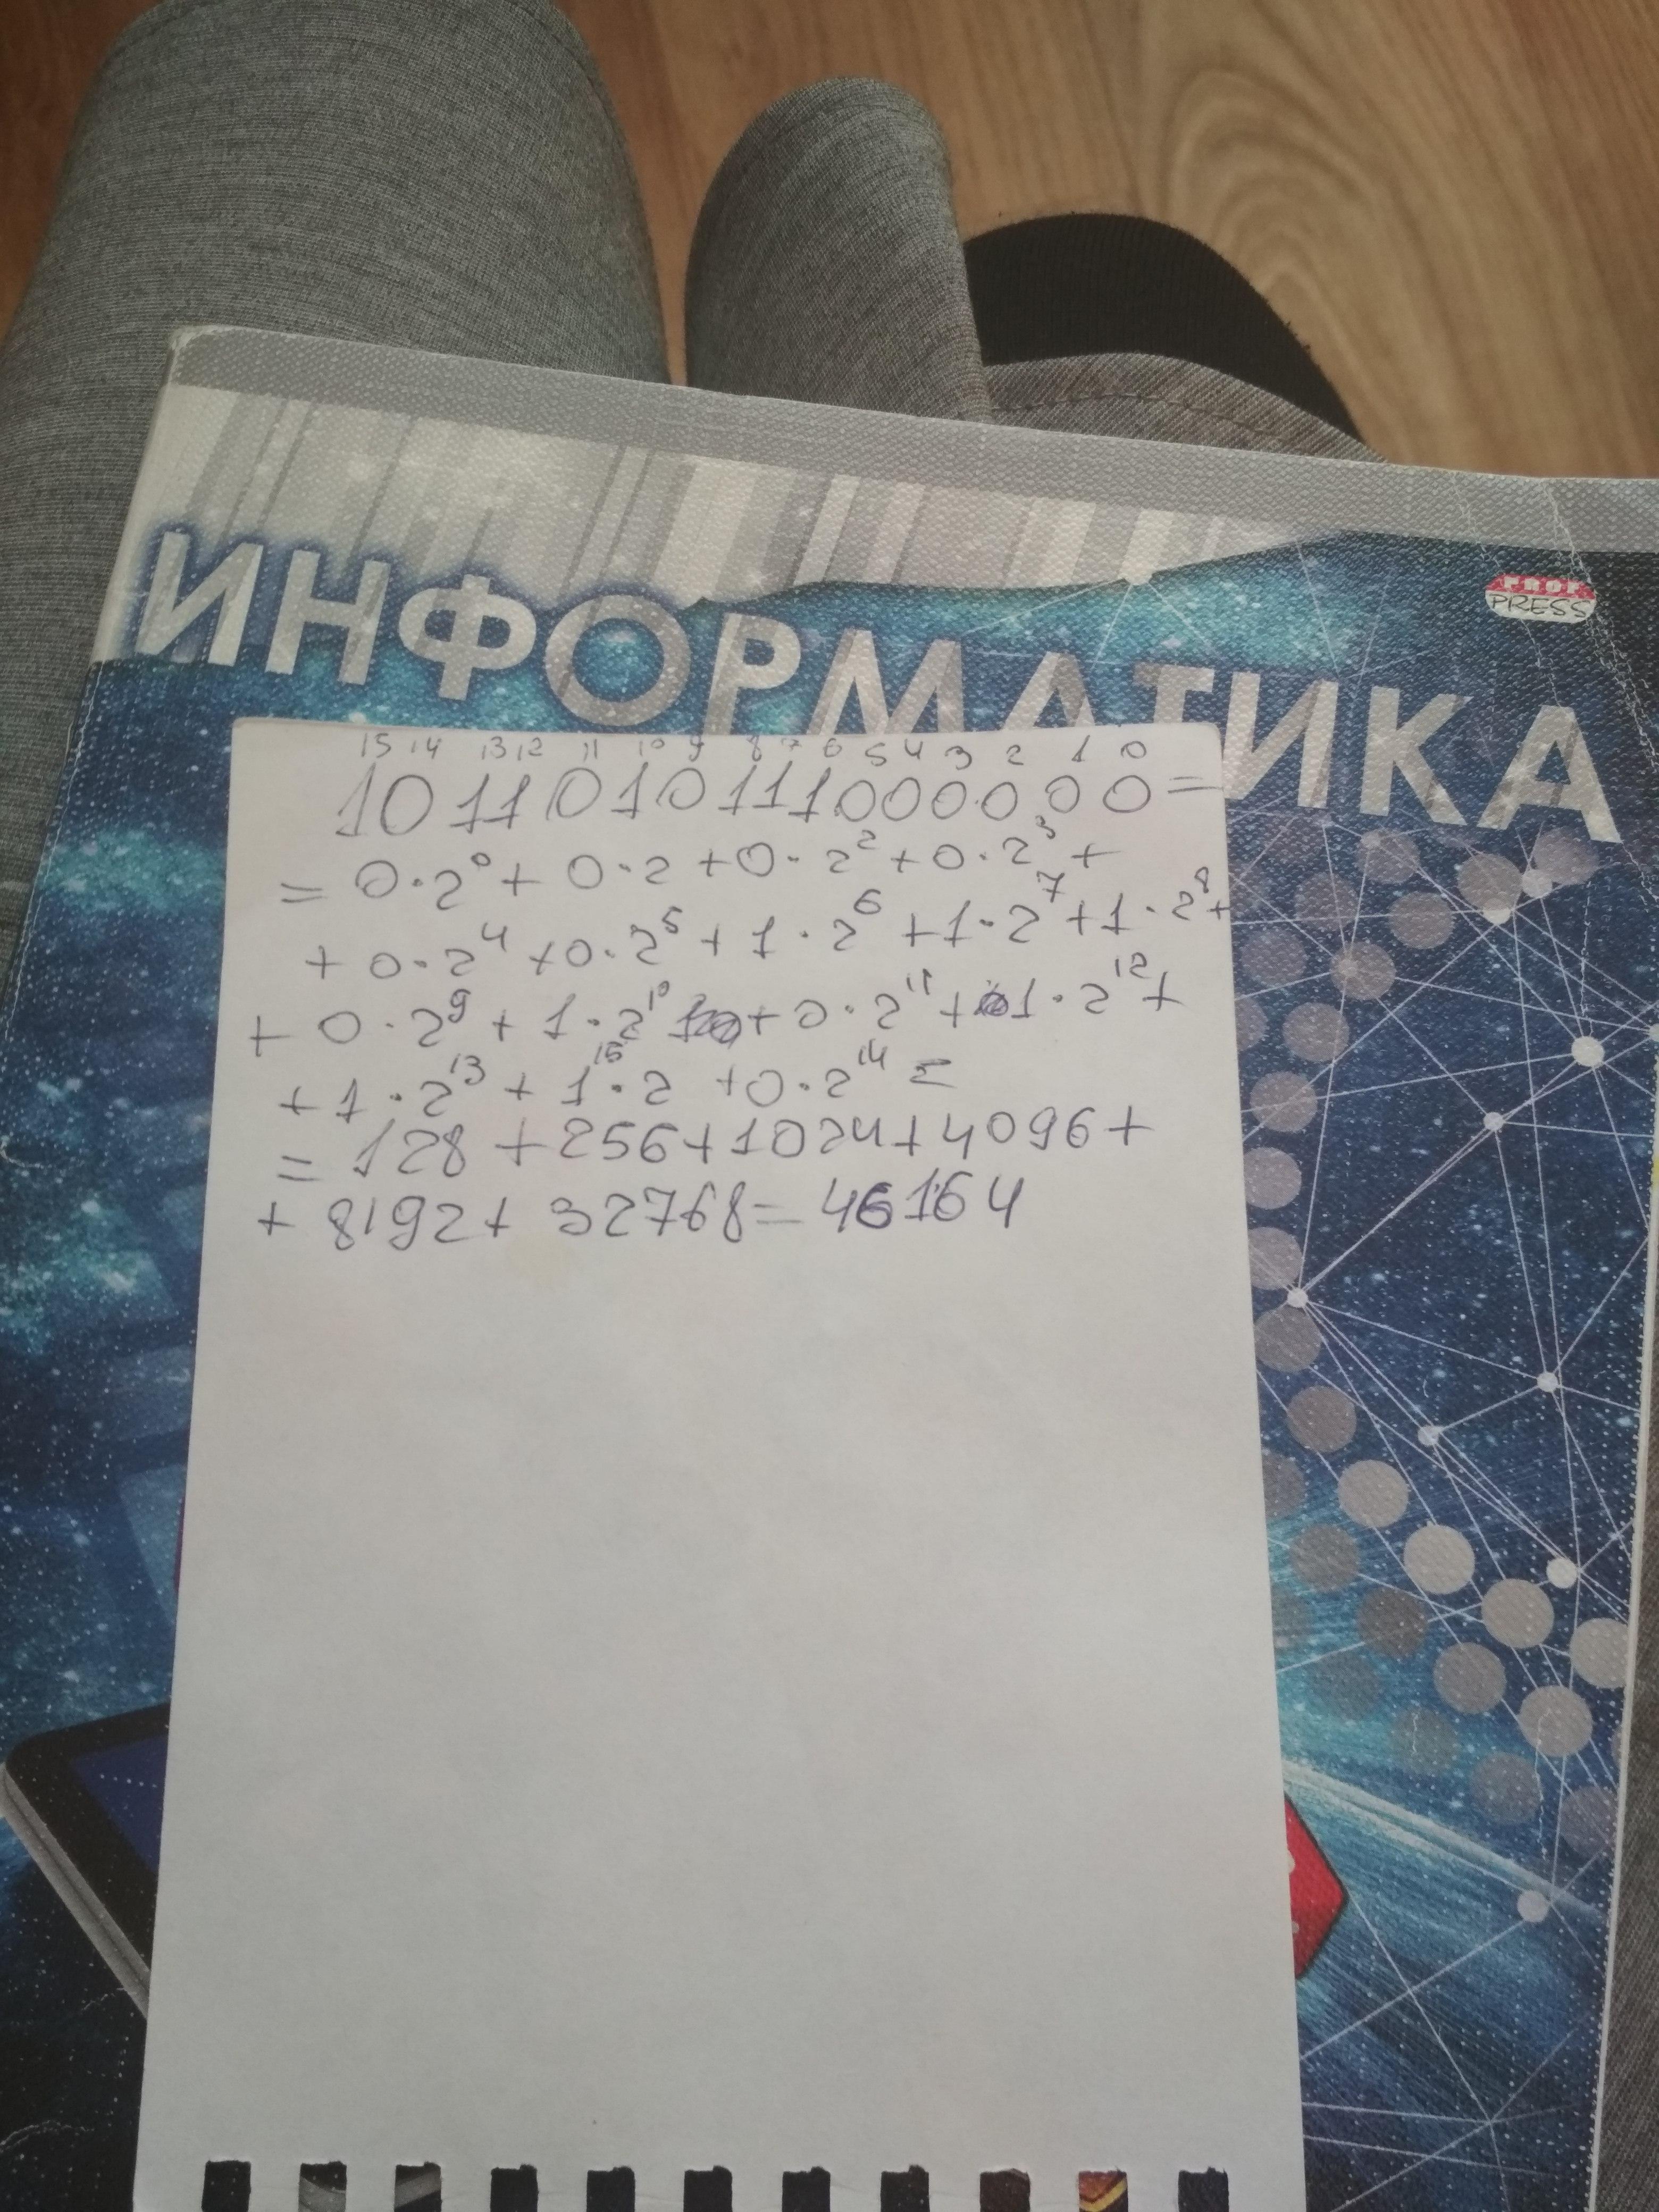 PROF
PRESS
ИНФОРМАТИКА
15 14 13 12 11 10 9 8 7 6 5 4 3 2 1 0
1011010111000000=
= 0·2⁰ + 0·2 + 0·2² + 0·2³ +
+ 0·2⁴ + 0·2⁵ + 1·2⁶ + 1·2⁷ + 1·2⁸ +
+ 0·2⁹ + 1·2¹⁰ + 0·2¹¹ + 1·2¹² +
+ 1·2¹³ + 1¹⁵·2 + 0·2¹⁴ =
= 128 + 256 + 1024 + 4096 +
+ 8192 + 32768 = 46164